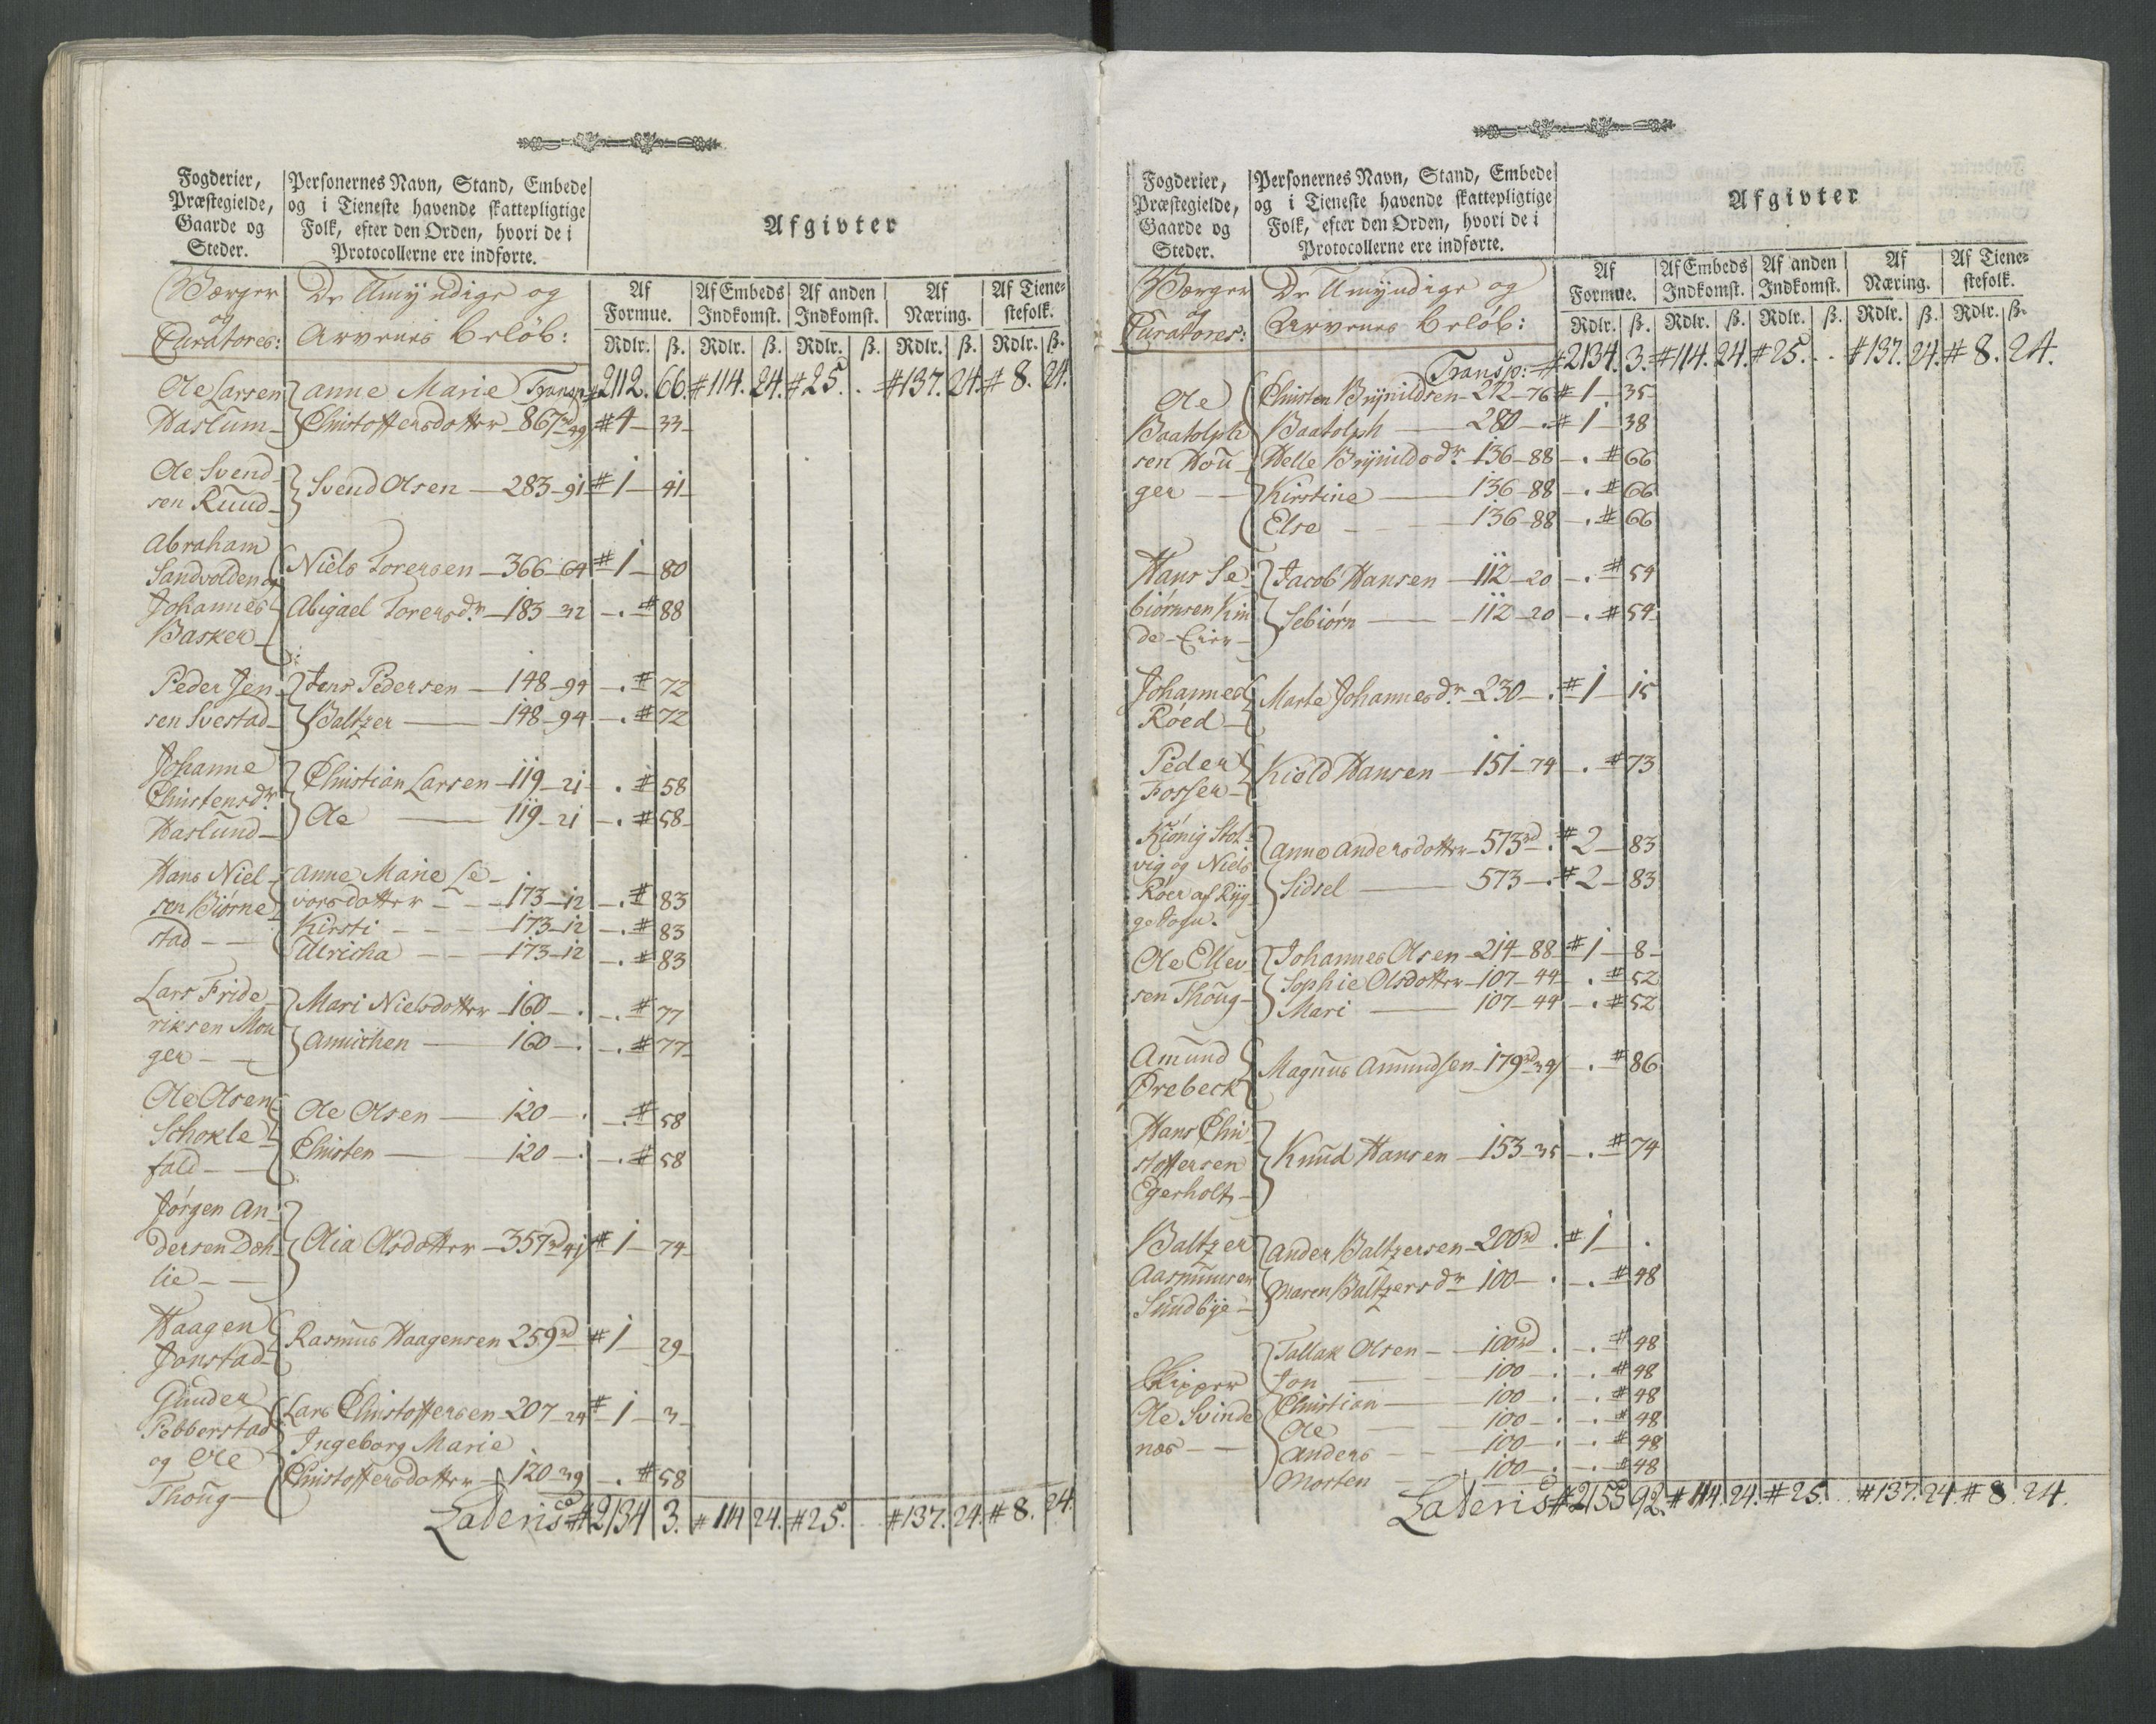 Fogderier,
Præstegielde,
Gaarde og
Steder.
Personernes Navn, Stand, Embede
og i Tieneste havende skattepligtige
Folk, efter den Orden, hvori de i
Protocollerne ere indførte.
Afgivter
Værger
og
Curatores:
De Umÿndige og
Arvenes beløb:
Af Formue.
Af Embeds Indkomst.
Af anden Indkomst.
Af Næring.
Af Tienestefolk.
Rdlr. ß. Rdlr. ß. Rdlr. ß. Rdlr. ß. Rdlr. ß.
Ole Larsen Anne Marie Transp. #2112. 66. #114. 24. #25. . #137. 24. #8. 24.
Haslum Christoffersdotter 867rd 49 #4 33
Ole Svend
sen Ruud Svend Olsen 283-91 #1 41
Abraham
Sandvolden og Niels Torersen 366-64 #1 80
Johannes Abigael Torersdr. 183-32 . #88
Basker
Peder Jen Jens Pedersen 148-94 . #72
sen Svestad Baltzer 148-94 . #72
Johanne
Christensdr. Christian Larsen 119-21 . #58
Haslund Ole 119-21 . #58
Hans Niel Anne Marie Le
sen Biørne vorsdotter 173-12 . #83
stad Kirsti 173-12 . #83
Ulricha 173-12 . #83
Lars Fride
riksen Mou Mari Nielsdotter 160 . . #77
ger Annichen 160 . . #77
Ole Olsen Ole Olsen 120 . . #58
Schokle
fald Christen 120 . . #58
Jørgen An
dersen Deh Olia Olsdotter 357rd 41 #1 74
lie
Haagen
Jonstad Rasmus Haagensen 259rd #1 29
Gunder Lars Christoffersen 207-24 #1 3
Pebberstad Ingeborg Marie
og Ole Christoffersdotter 120-39 . #58
Thoug
Lateris #2134 3. #114 24. #25. #137. 24. #8. 24.
Fogderier,
Præstegielde,
Gaarde og
Steder.
Personernes Navn, Stand, Embede
og i Tieneste havende skattepligtige
Folk, efter den Orden, hvori de i
Protocollerne ere indførte.
Afgivter
Værger
og
Curatores:
De Umÿndige og
Arvenes beløb:
Af Formue.
Af Embeds Indkomst.
Af anden Indkomst.
Af Næring.
Af Tienestefolk.
Rdlr. ß. Rdlr. ß. Rdlr. ß. Rdlr. ß. Rdlr. ß.
Transp: #2134. 3. #114. 24. #25. . . #137. 24. #8. 24.
Ole Christen Brÿnildsen 272-76 #1 35
Baatolph Baatolph 280 . #1 38
sen Hou Helle Brÿnildsdr. 136-88 . #66
ger Kirstine 136-88 . #66
Else 136-88 . #66
Hans Se Jacob Hansen 112-20 . #54
biørnsen Kin Sebiørn 112-20 . #54
de Eier
Johannes Marte Johannesdr. 230 . #1 15
Røed
Peder Kiøld Hansen 151-74 . #73
Fosser
Kiønig Stol
vig og Niels Anne Andersdotter 573rd . #2 83
Röer af Rÿg Sidsel 573 . #2 83
ge Sogn.
Ole Ellev Johannes Olsen 214-88 #1 8
sen Thoug Sophie Olsdotter 107-44 . #52
Mari 107-44 . #52
Amund
Ørebeck Magnus Amundsen 179rd 34 . #86
Hans Chri
stoffersen Knud Hansen 153-35 . #74
Egerholt
Baltzer Ander Baltzersen 200rd . #1 .
Aasmunsen Maren Baltzersdr. 100 . . #48
Sundbÿe
Tallak Olsen 100rd . . #48
Skipper Jon 100 . . #48
Ole Svinde Christian 100 . . #48
næs Ole 100 . . #48
Anders 100 . . #48
Morten 100 . . #48
Lateris #2155 92. #114. 24. #25. #137. 24. #8. 24.